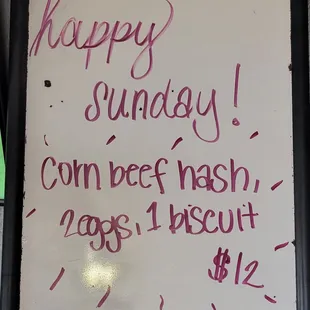 happy
sunday!
corn beef hash,
2eggs, 1 biscuit
$12